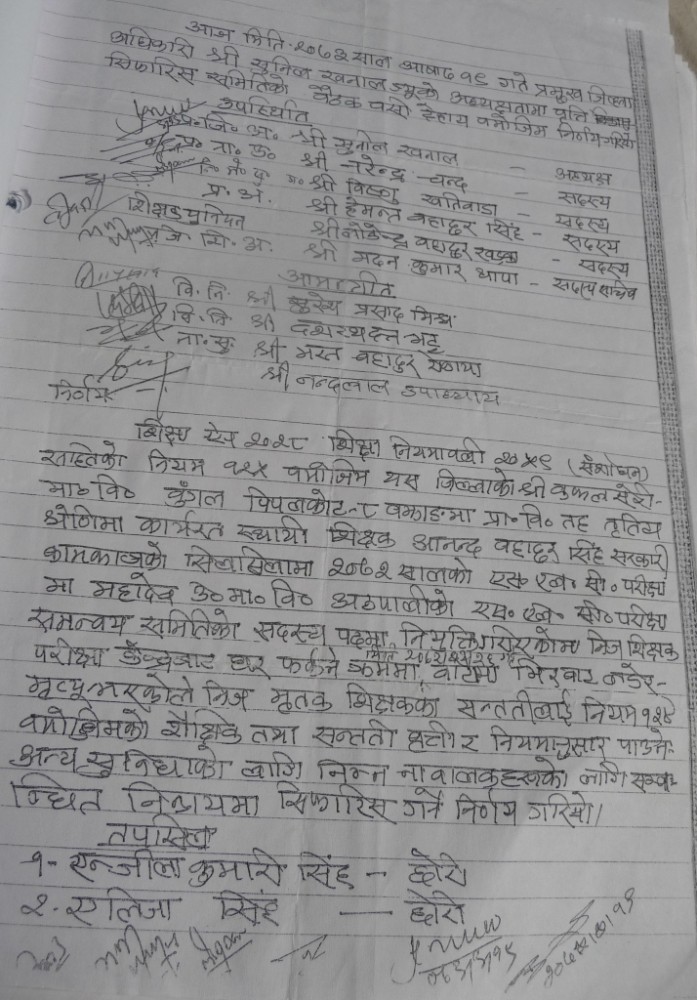 आज मिति २०७२ साल आषाढ १९ गते प्रमुख जिल्ला
अधिकारी श्री सुनिल खनाल ज्यूको अध्यक्षतामा वृत्ति
सिफारिस समितिको बैठक बसी देहाय बमोजिम निर्णय गरियो
उपस्थिति
प्र. जि. अ. श्री सुनील खनाल - अध्यक्ष
प्र. ना. उ. श्री नरेन्द्र चन्द - सदस्य
श्री विष्णु खतिवडा - सदस्य
प्र. अ. श्री हेमन्त बहादुर सिंह - सदस्य
शिक्षक प्रतिनिधि श्री बहादुर खड्का - सदस्य
जि. शि. अ. श्री मदन कुमार थापा - सदस्य सचिव
आमन्त्रीत
वि. नि. श्री प्रसाद मिश्र
वि. नि. श्री दशरथदत्त भट्ट
ना. सु. श्री भरत बहादुर
श्री नन्दलाल उपाध्याय
निर्णय
शिक्षा ऐन २०२८ शिक्षा नियमावली २०५९ (संशोधन)
सहितको नियम १२५ बमोजिम यस जिल्लाको श्री
मा० वि० कुंगल पिपलकोट-८ बझाङमा प्रा. वि. तह तृतिय
श्रेणीमा कार्यरत स्थायी शिक्षक आनन्द बहादुर सिंह सरकारी
कामकाजको सिलसिलामा २०७२ सालको एस० एल० सी० परीक्षा
मा महादेव उ० मा० वि० अठपालीको एस. एल. सी० परीक्षा
समन्वय समितिको सदस्य पदमा नियुक्ति गरिएकोमा निज शिक्षक
परीक्षा केन्द्रबाट घर फर्कने क्रममा, बाटोमा भिरबाट लडेर
मृत्यु भएकोले निज मृतक शिक्षकका सन्ततीलाई नियम १२५
बमोजिमको शैक्षिक तथा सन्तती वृत्ती र नियमानुसार पाउने
अन्य सुविधाको लागि निम्न नाबालकहरुको लागि सम्ब-
न्धित निकायमा सिफारिस गर्ने निर्णय गरियो।
तपसिल
१- एन्जीला कुमारी सिंह - छोरी
२. एलिजा सिंह — छोरी